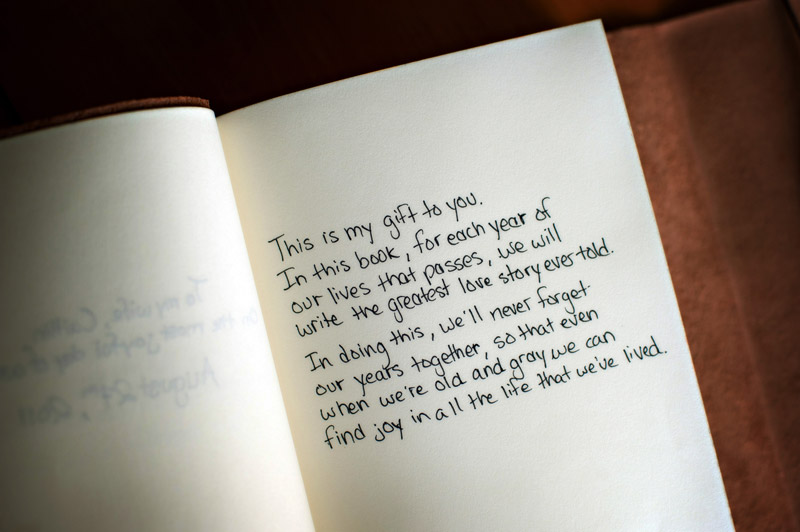 To my wife,
the most joyful day of
August 27th, 2011
This is my gift to you.
In this book, for each year of
our lives that passes, we will
write the greatest love story ever told.
In doing this, we'll never forget
our years together, so that even
when we're old and gray we can
find joy in all the life that we've lived.